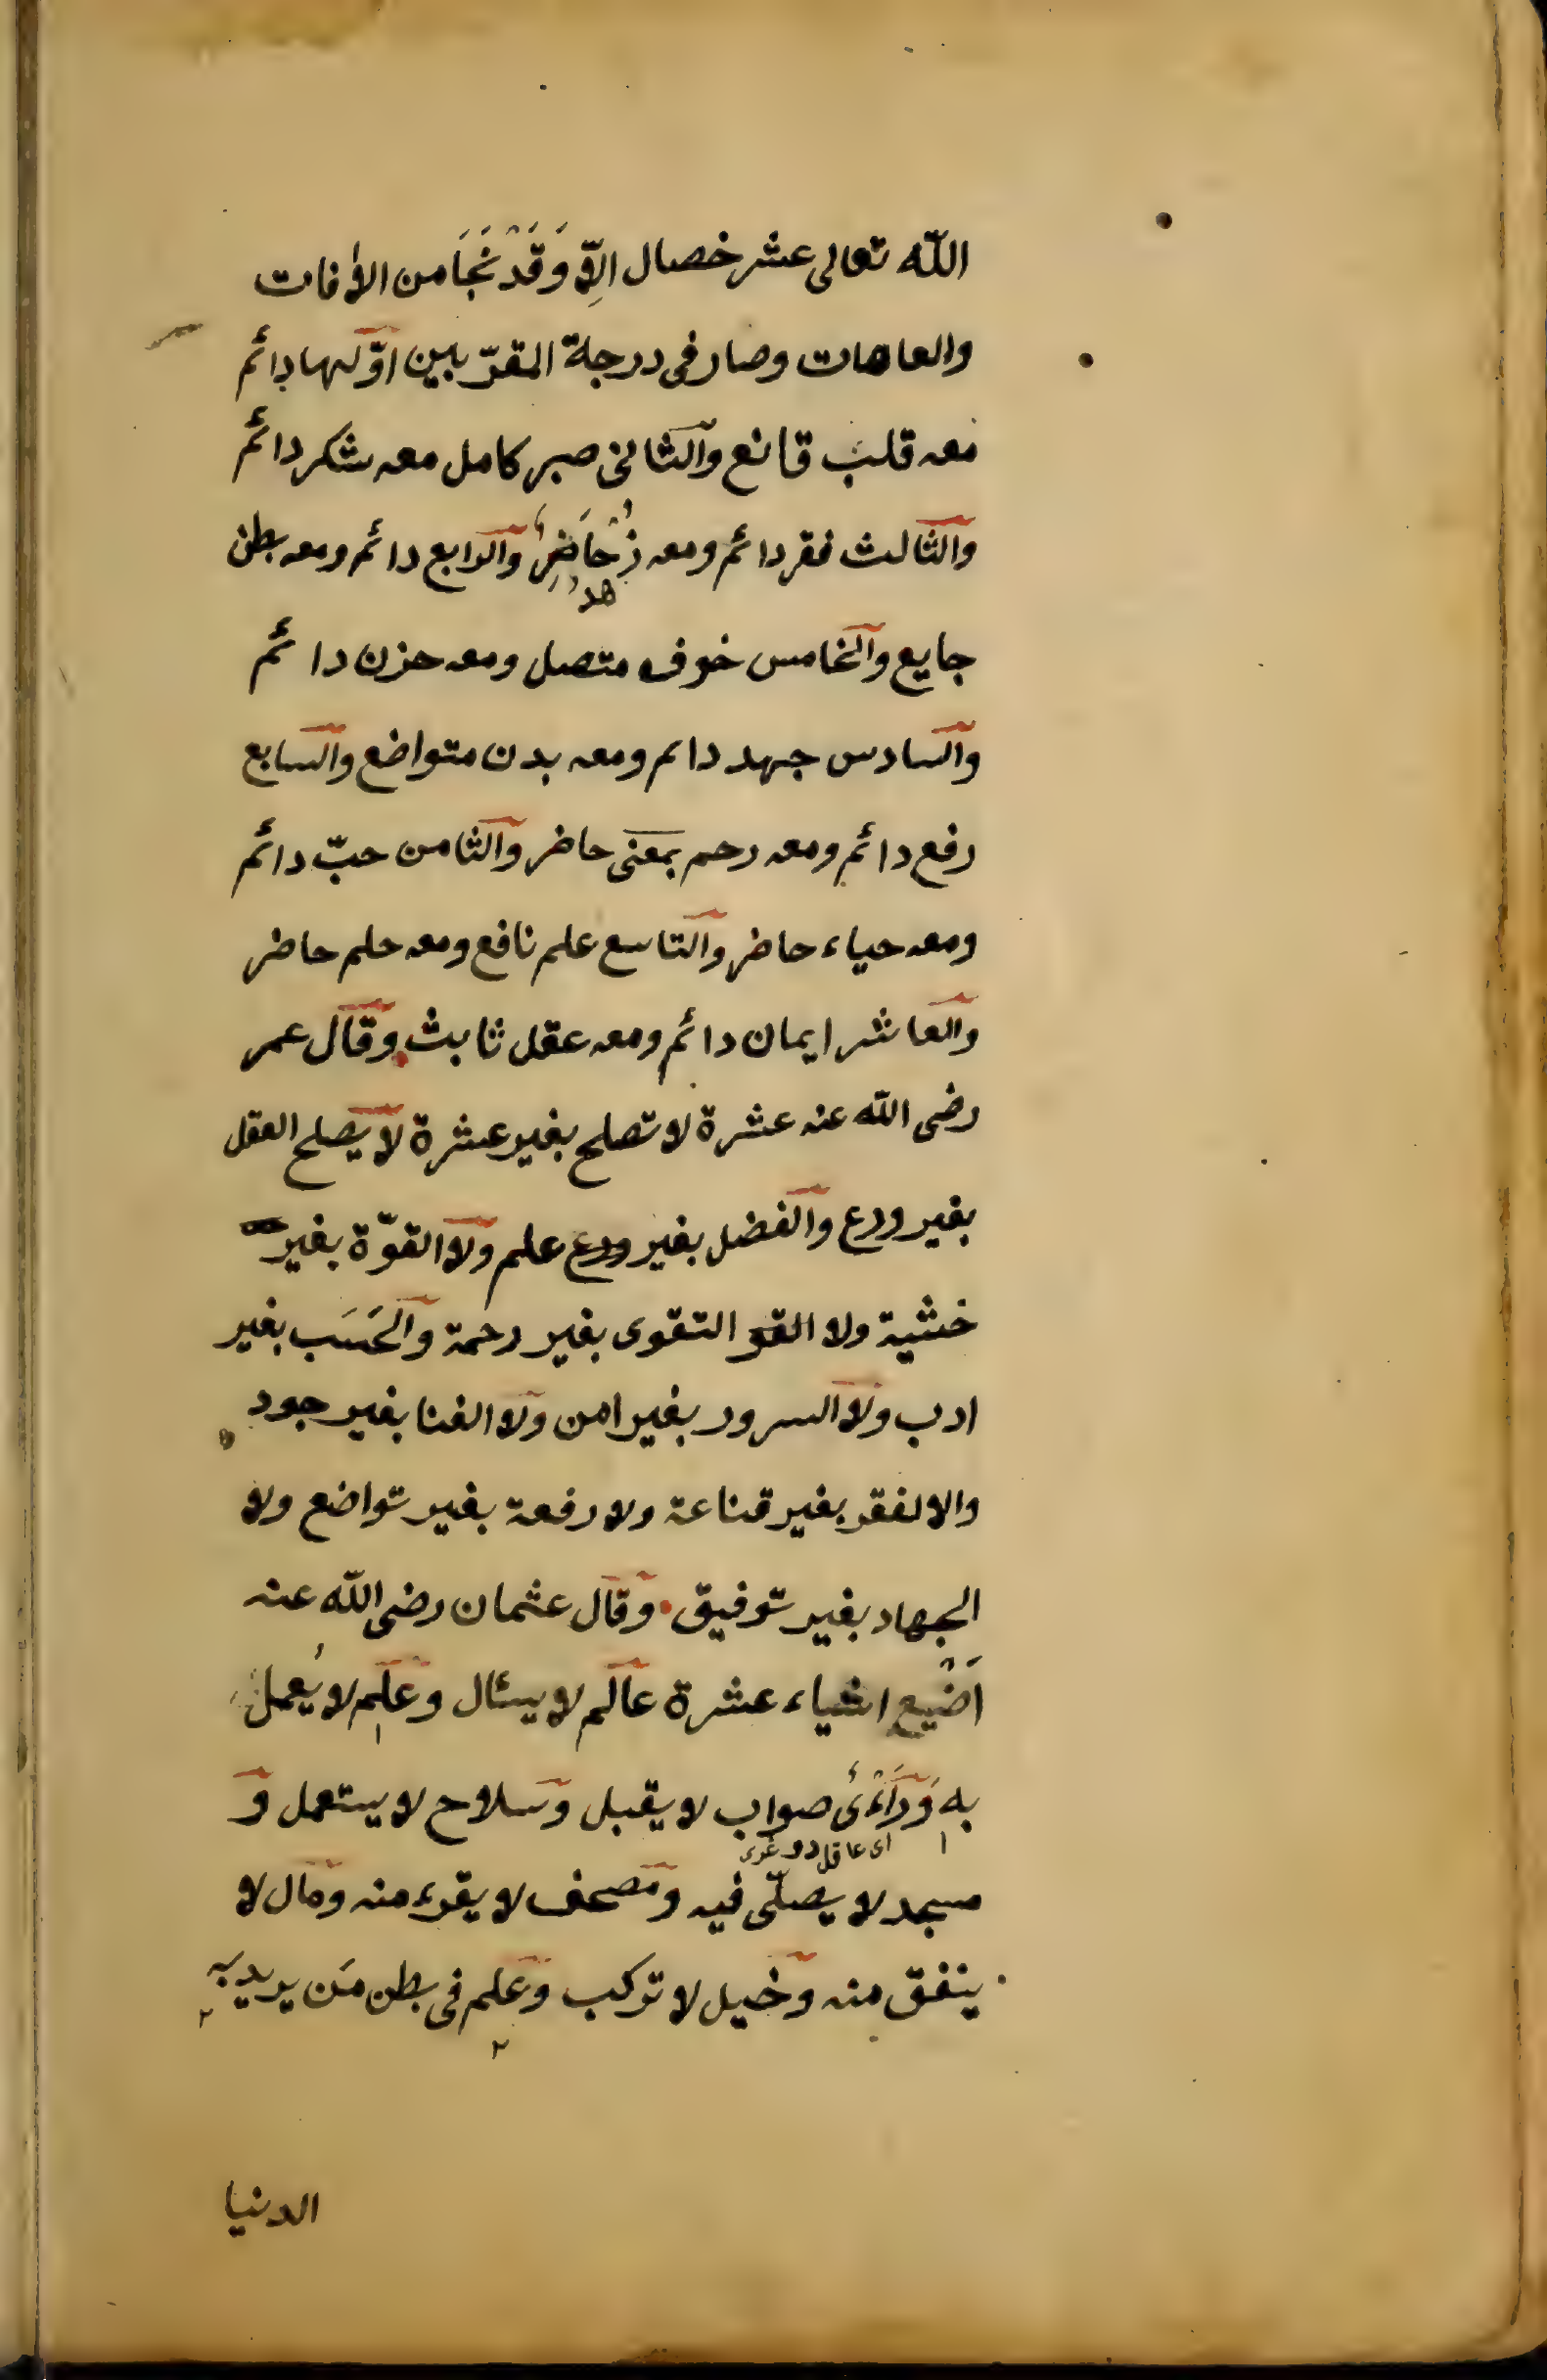 الله تعالى عشر خصال الّا وَقَدْ نَجَا من الافات
والعاهات وصار فى درجة المقرّبين اوّلها دائم
معه قلب قانع والثانى صبر كامل معه شكر دائم
والثالث فقر دائم ومعه زُهْد حَاضِرٌ والرابع دائم ومعه بطن
جايع والخامس خوف متصل ومعه حزن دائم
والسادس جهد دائم ومعه بدن متواضع والسابع
رفع دائم ومعه رحم بمعنى حاضر والثامن حبّ دائم
ومعه حياء حاضر والتاسع علم نافع ومعه حلم حاضر
والعاشر ايمان دائم ومعه عقل ثابت وقال عمر
رضى الله عنه عشرة لا تصلح بغير عشرة لا يصلح العقل
بغير ورع والفضل بغير ورع علم ولا القوّة بغير
خشية ولا القو التقوى بغير رحمة والحَسَب بغير
ادب ولا السرور بغير امن ولا الغنا بغير جود
والا لفقر بغير قناعة ولا رفعة بغير تواضع ولا
الجهاد بغير توفيق وقال عثمان رضى الله عنه
اَضْيع اشياء عشرة عالم لا يسئال وعلم لا يُعمل
به وَرَاْءىُ صواب لا يقبل وسلاح لا يستعمل و
اى عاقل
مسجد لا يصلّى فيه ومصحف لا يقرء منه ومال لا
ينفق منه وخيل لا تركب وعلم فى بطن مَن يريد به
الدنيا